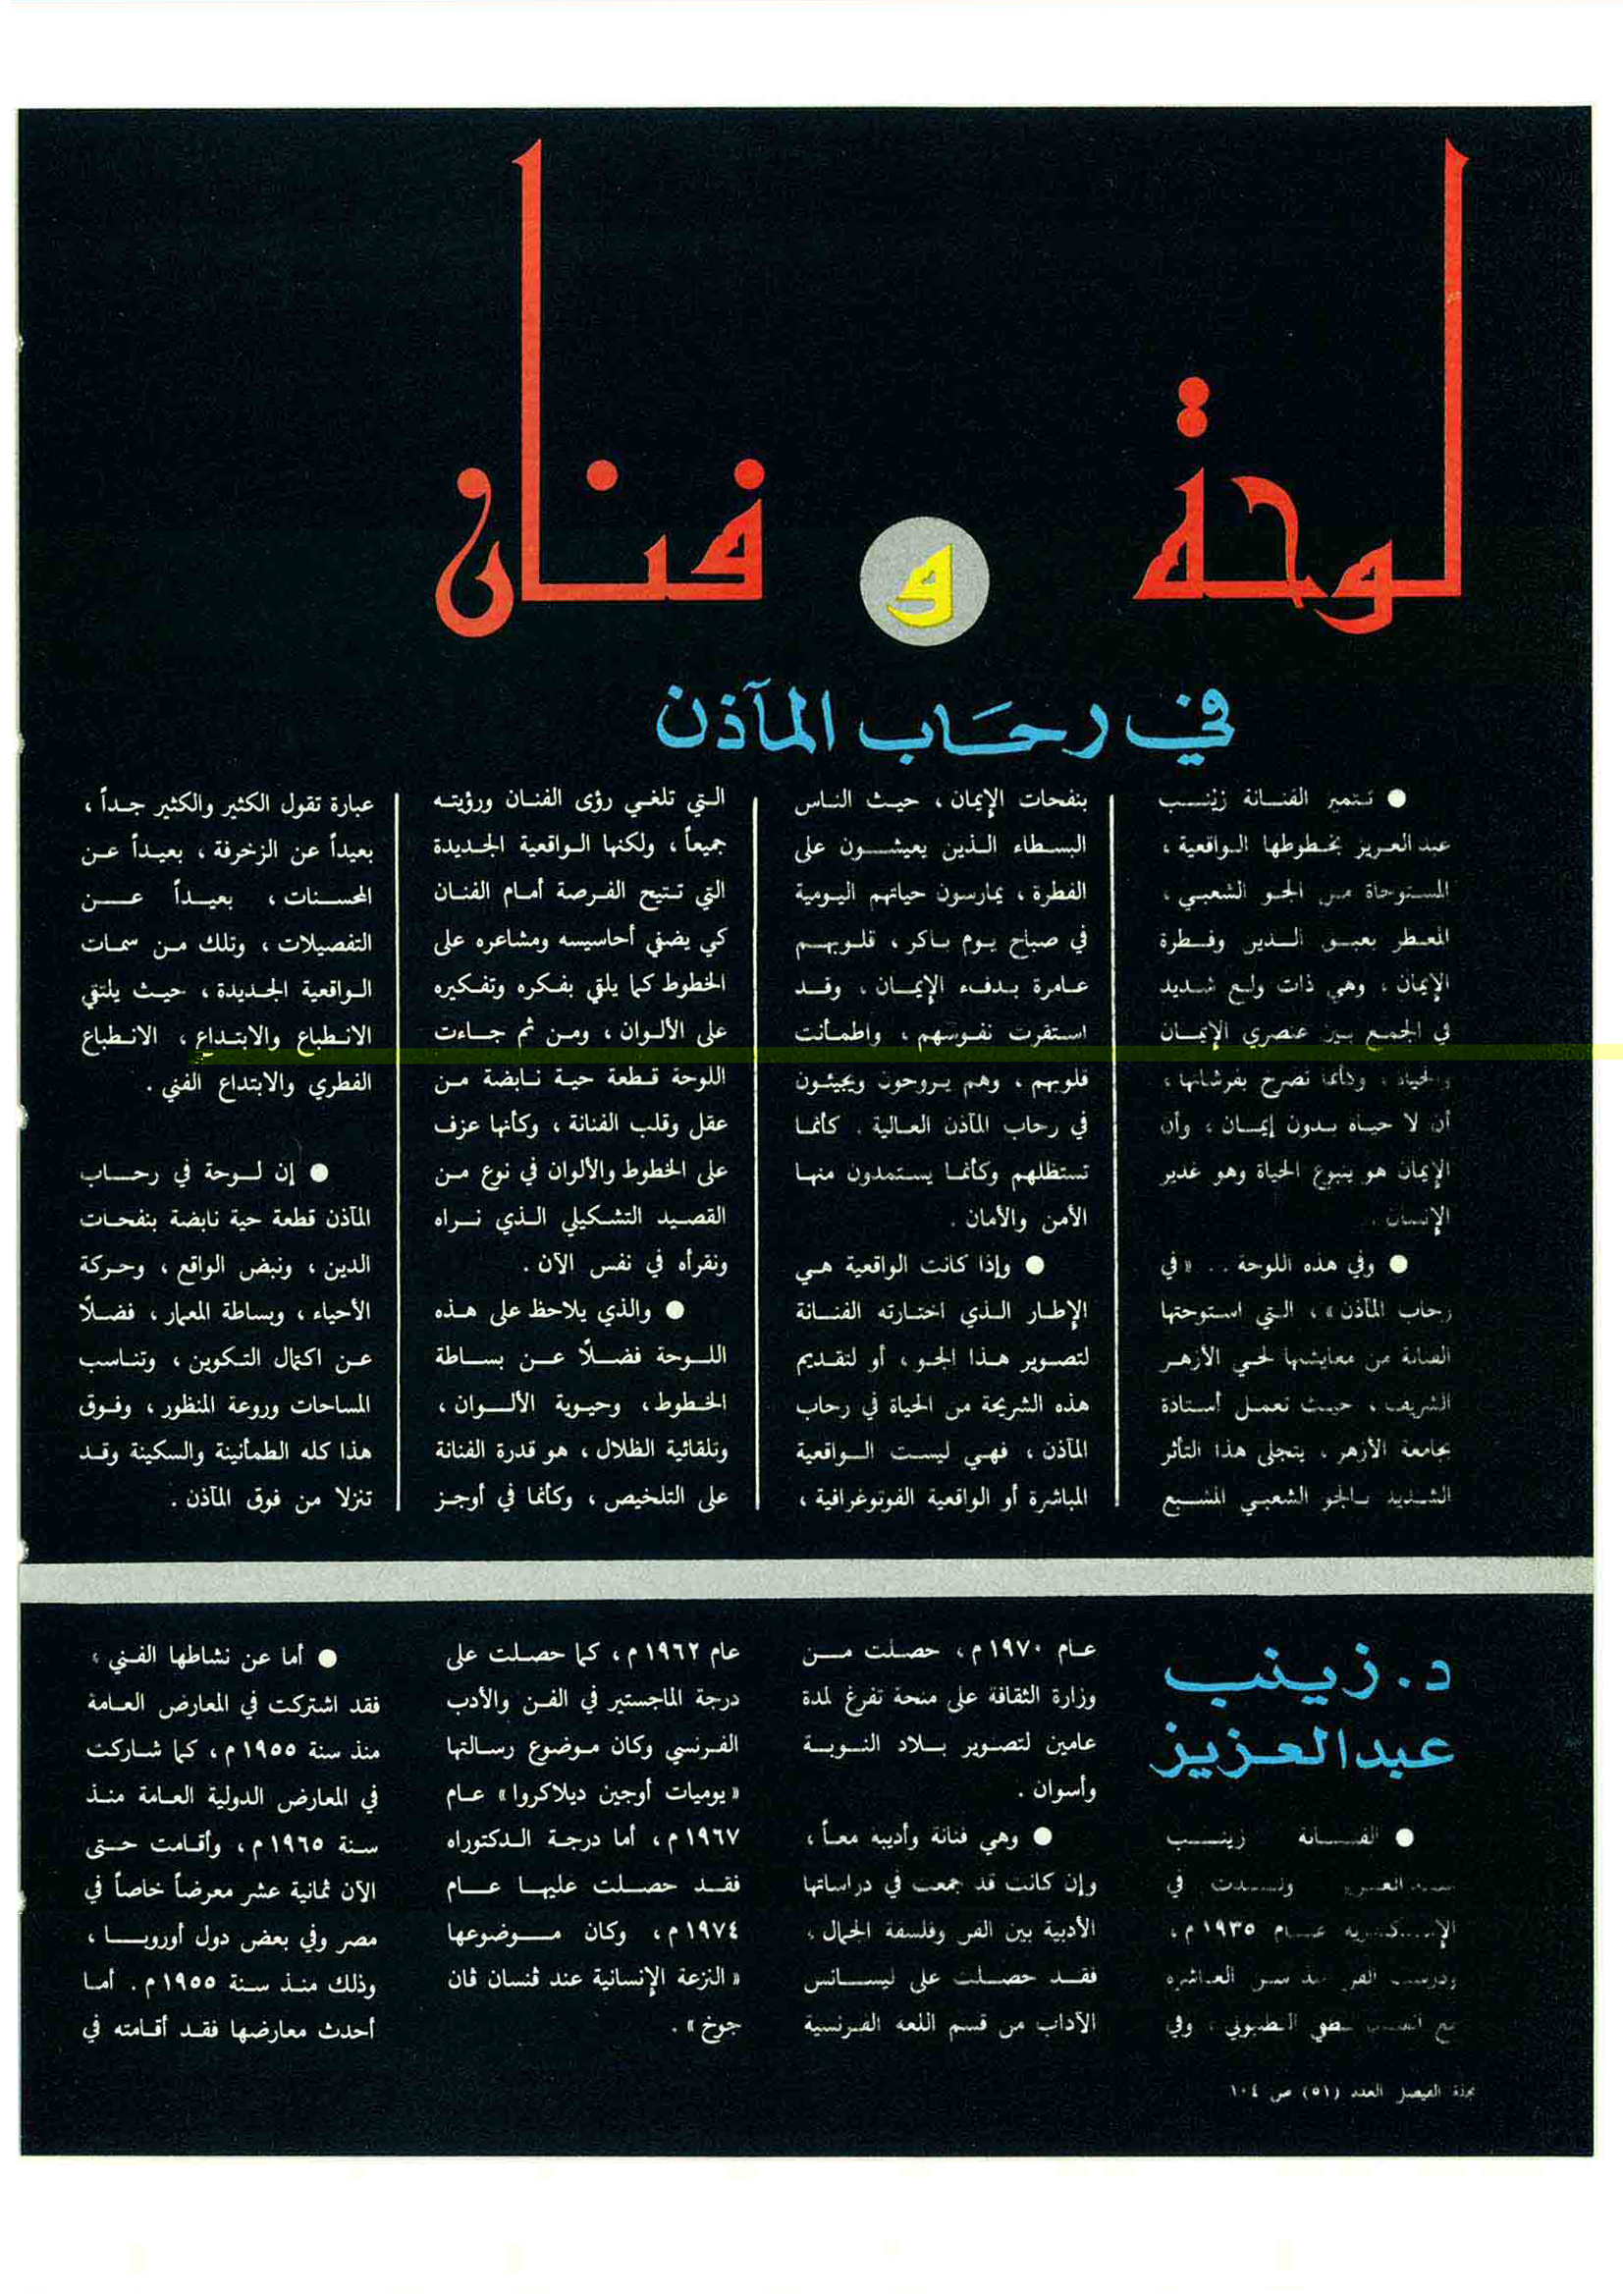 لوحة و فنان
في رحاب المآذن
● تتميز الفنانة زينب
عبد العزيز بخطوطها الواقعية ،
المستوحاة من الجو الشعبي ،
المعطر بعبق الدين وفطرة
الإيمان ، وهي ذات ولع شديد
في الجمع بين عنصري الإيمان
والحياة ، وكأنما تصرح بفرشاتها ،
أن لا حياة بدون إيمان ، وأن
الإيمان هو ينبوع الحياة وهو غدير
الإنسان .
● وفي هذه اللوحة .. « في
رحاب المآذن » ، التي استوحتها
الفنانة من معايشتها لحي الأزهر
الشريف ، حيث تعمل أستاذة
بجامعة الأزهر ، يتجلى هذا التأثر
الشديد بالجو الشعبي المشبع
بنفحات الإيمان ، حيث الناس
البسطاء الذين يعيشون على
الفطرة ، يمارسون حياتهم اليومية
في صباح يوم باكر ، قلوبهم
عامرة بدفء الإيمان ، وقد
استقرت نفوسهم ، واطمأنت
قلوبهم ، وهم يروحون ويجيئون
في رحاب المآذن العالية . كأنما
تستظلهم وكأنما يستمدون منها
الأمن والأمان .
● وإذا كانت الواقعية هي
الإطار الذي اختارته الفنانة
لتصوير هذا الجو ، أو لتقديم
هذه الشريحة من الحياة في رحاب
المآذن ، فهي ليست الواقعية
المباشرة أو الواقعية الفوتوغرافية ،
التي تلغي رؤى الفنان ورؤيته
جميعاً ، ولكنها الواقعية الجديدة
التي تتيح الفرصة أمام الفنان
كي يضفي أحاسيسه ومشاعره على
الخطوط كما يلقي بفكره وتفكيره
على الألوان ، ومن ثم جاءت
اللوحة قطعة حية نابضة من
عقل وقلب الفنانة ، وكأنها عزف
على الخطوط والألوان في نوع من
القصيد التشكيلي الذي نراه
ونقرأه في نفس الآن .
● والذي يلاحظ على هذه
اللوحة فضلاً عن بساطة
الخطوط ، وحيوية الألوان ،
وتلقائية الظلال ، هو قدرة الفنانة
على التلخيص ، وكأنما في أوجز
عبارة تقول الكثير والكثير جداً ،
بعيداً عن الزخرفة ، بعيداً عن
المحسنات ، بعيداً عن
التفصيلات ، وتلك من سمات
الواقعية الجديدة ، حيث يلتقي
الانطباع والابتداع ، الانطباع
الفطري والابتداع الفني .
● إن لوحة في رحاب
المآذن قطعة حية نابضة بنفحات
الدين ، ونبض الواقع ، وحركة
الأحياء ، وبساطة المعمار ، فضلاً
عن اكتمال التكوين ، وتناسب
المساحات وروعة المنظور ، وفوق
هذا كله الطمأنينة والسكينة وقد
تنزلا من فوق المآذن .
د. زينب
عبد العزيز
● الفنانة زينب
عبد العزيز ولدت في
الإسكندرية عام ١٩٣٥ م ،
ودرست الفن منذ سن العاشرة
مع الطبوني ، وفي
عام ١٩٧٠ م ، حصلت من
وزارة الثقافة على منحة تفرغ لمدة
عامين لتصوير بلاد النوبة
وأسوان .
● وهي فنانة وأديبة معاً ،
وإن كانت قد جمعت في دراساتها
الأدبية بين الفن وفلسفة الجمال ،
فقد حصلت على ليسانس
الآداب من قسم اللغة الفرنسية
عام ١٩٦٢ م ، كما حصلت على
درجة الماجستير في الفن والأدب
الفرنسي وكان موضوع رسالتها
« يوميات أوجين ديلاكروا » عام
١٩٦٧ م ، أما درجة الدكتوراه
فقد حصلت عليها عام
١٩٧٤ م ، وكان موضوعها
« النزعة الإنسانية عند ڤنسان ڤان
جوخ » .
● أما عن نشاطها الفني ،
فقد اشتركت في المعارض العامة
منذ سنة ١٩٥٥ م ، كما شاركت
في المعارض الدولية العامة منذ
سنة ١٩٦٥ م ، وأقامت حتى
الآن ثمانية عشر معرضاً خاصاً في
مصر وفي بعض دول أوروبا ،
وذلك منذ سنة ١٩٥٥ م . أما
أحدث معارضها فقد أقامته في
مجلة الفيصل العدد (٥١) ص ١٠٤